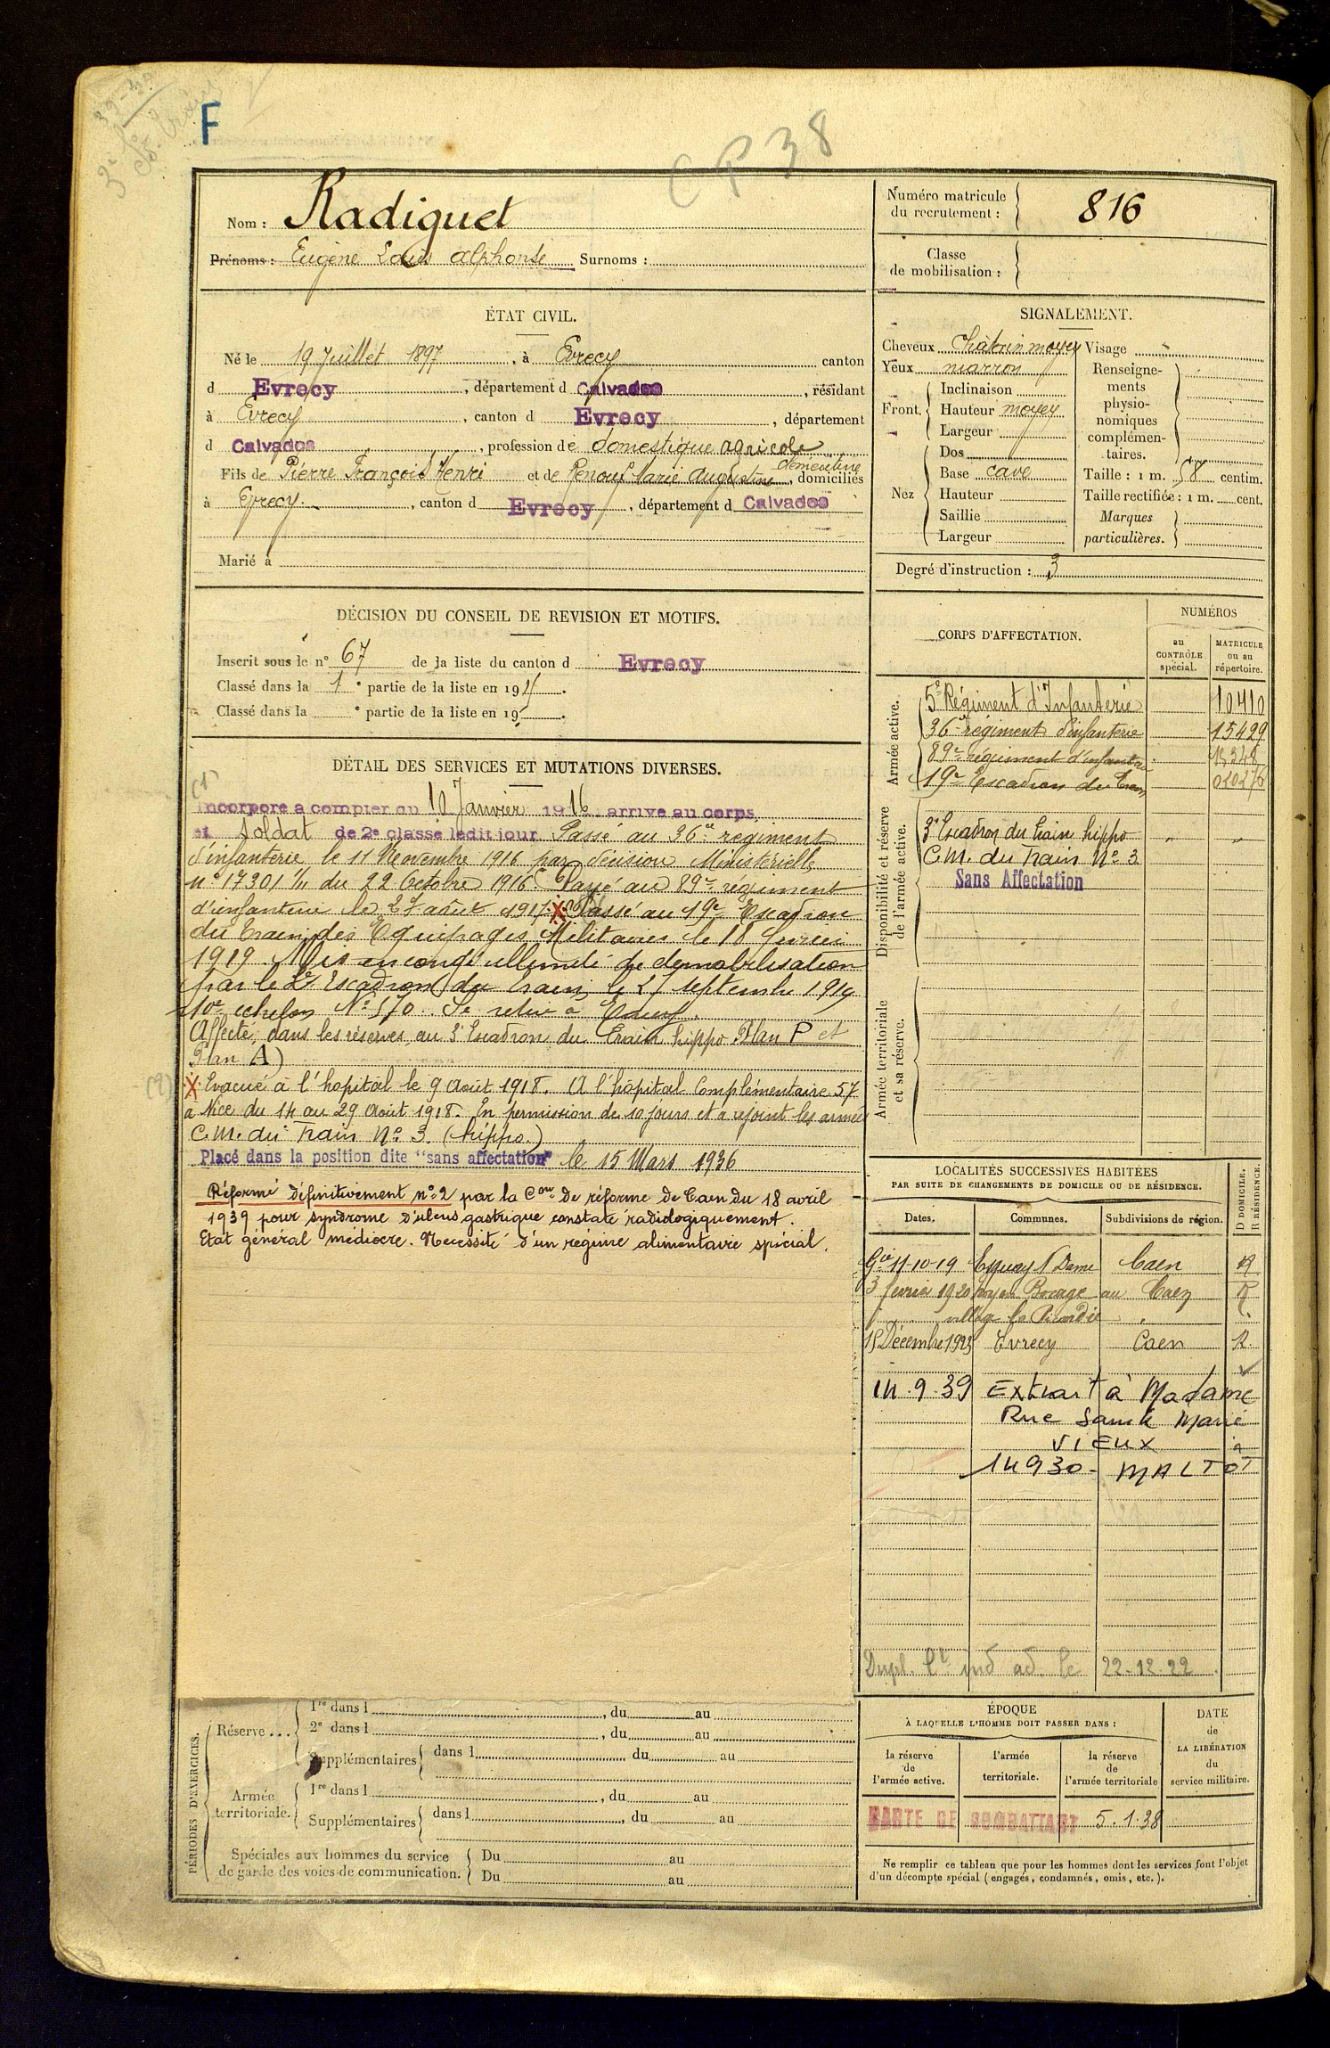 F
CP 38
Nom : Radiguet
Prénoms : Eugène Louis Alphonse Surnoms :
Numéro matricule du recrutement : 816
Classe de mobilisation :
ÉTAT CIVIL.
Né le 19 Juillet 1897, à Evrecy canton
d Evrecy, département d Calvados, résidant
à Evrecy, canton d Evrecy, département
d Calvados, profession de domestique agricole
Fils de Pierre François Henri et de Renouf Marie Augustine Clémentine, domiciliés
à Evrecy, canton d Evrecy, département d Calvados
Marié à
SIGNALEMENT.
Cheveux Châtain moyen Visage
Yeux marron
Front. Inclinaison
Hauteur moyen
Largeur
Nez Dos
Base cave
Hauteur
Saillie
Largeur
Renseignements physionomiques complémentaires.
Taille : 1 m. 58 centim.
Taille rectifiée : 1 m. cent.
Marques particulières.
Degré d'instruction : 3
DÉCISION DU CONSEIL DE REVISION ET MOTIFS.
Inscrit sous le n° 67 de la liste du canton d Evrecy
Classé dans la 1e partie de la liste en 191
Classé dans la e partie de la liste en 19
DÉTAIL DES SERVICES ET MUTATIONS DIVERSES.
(1)
Incorporé à compter du Janvier 1916, arrivé au corps
et soldat de 2e classe ledit jour. Passé au 36e regiment
d'infanterie le 11 Novembre 1916 par décision Ministérielle
n° 17301 1/11 du 22 Octobre 1916. Passé au 89e régiment
d'infanterie le 27 août 1917. X Passé au 19e Escadron
du Train des Equipages Militaires le 18 fevrier
1919. Mis en congé illimité de démobilisation
par le Escadron du train le 27 septembre 1919
10e echelon N° 570. Se retire à
Affecté dans les réserves au 3e Escadron du Train hippo Plan P et
Plan A)
(2)
X Evacué à l'hopital le 9 Août 1918. A l'hôpital Complémentaire 57
à Nice du 14 au 29 Août 1918. En permission de 10 jours et a rejoint les armées
C.M. du Train N° 3. (hippo.)
Placé dans la position dite "sans affectation" le 15 Mars 1936
Réformé définitivement n° 2 par la Con de réforme de Caen du 18 avril
1939 pour syndrome d'ulcus gastrique constaté radiologiquement.
Etat général médiocre. Necessité d'un regime alimentaire spécial.
CORPS D'AFFECTATION.
NUMÉROS
au CONTRÔLE spécial.
MATRICULE ou au répertoire.
Armée active.
5e Régiment d'Infanterie 10410
36e régiment d'infanterie 15429
89e régiment d'infanterie
19e Escadron du Train
Disponibilité et réserve de l'armée active.
3e Escadron du train hippo
C.M. du Train N° 3
Sans Affectation
Armée territoriale et sa réserve.
LOCALITÉS SUCCESSIVES HABITÉES
PAR SUITE DE CHANGEMENTS DE DOMICILE OU DE RÉSIDENCE.
Dates. Communes. Subdivisions de région. D DOMICILE. R RÉSIDENCE.
11-10-19 N Dame Caen R
3 fevrier 1920 Bocage au Caen R
village
15 Décembre 1923 Evrecy Caen R.
14.9.39 Extrait à Madame
Rue Sainte Marie
VIEUX
14930 - MALTOT
22-12-22
PÉRIODES D'EXERCICES.
Réserve ... 1re dans l , du au
2e dans l , du au
Supplémentaires dans l du au
Armée territoriale. 1re dans l , du au
Supplémentaires dans l , du au
Spéciales aux hommes du service de garde des voies de communication. Du au
Du au
ÉPOQUE
À LAQUELLE L'HOMME DOIT PASSER DANS :
la réserve de l'armée active.
l'armée territoriale.
la réserve de l'armée territoriale
DATE de LA LIBÉRATION du service militaire.
CARTE DE COMBATTANT 5.1.38
Ne remplir ce tableau que pour les hommes dont les services font l'objet
d'un décompte spécial (engagés, condamnés, omis, etc.).